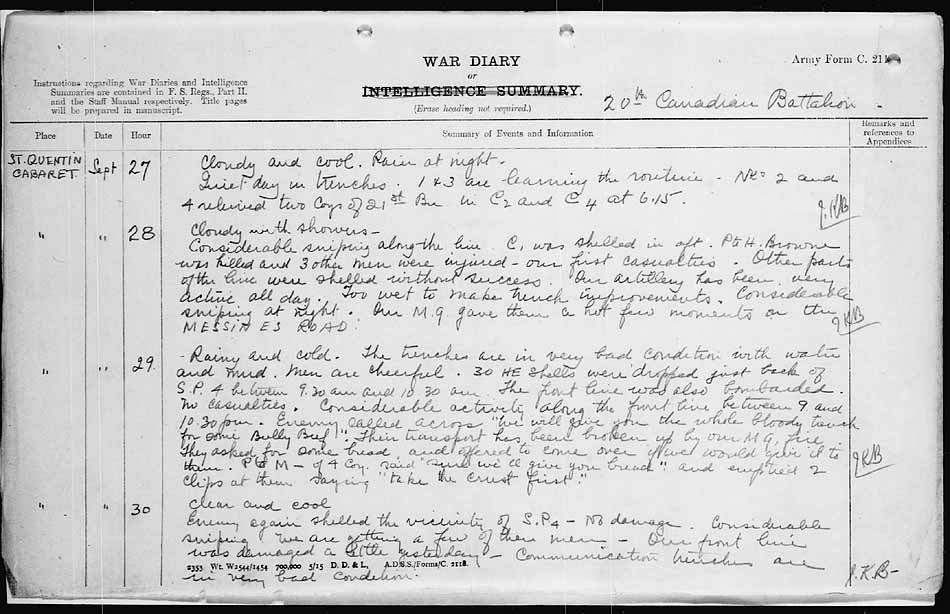 WAR DIARY
or
INTELLIGENCE SUMMARY.
(Erase heading not required.)
Army Form C. 211
Instructions regarding War Diaries and Intelligence
Summaries are contained in F. S. Regs., Part II.
and the Staff Manual respectively. Title pages
will be prepared in manuscript.
20th Canadian Battalion.
Place Date Hour Summary of Events and Information Remarks and
references to
Appendices
ST. QUENTIN
CABARET
Sept 27 Cloudy and cool. Rain at night.
Quiet day in trenches. 1 & 3 are learning the routine - Nos 2 and
4 relieved two Coys of 21st Bn in C2 and C4 at 6.15.
J.K.B
" " 28 Cloudy with showers -
Considerable sniping along the line. C1 was shelled in aft. Pte H. Browne
was killed and 3 other men were injured - our first casualties. Other parts
of the line were shelled without success. Our artillery has been very
active all day. Too wet to make trench improvements. Considerable
sniping at night. Our M.G. gave them a hot few moments on the
MESSINES ROAD.
J.K.B
" " 29 - Rainy and cold. The trenches are in very bad condition with water
and mud. Men are cheerful. 30 HE shells were dropped just back of
S.P. 4 between 9.30 am and 10.30 am. The front line was also bombarded.
No casualties. Considerable activity along the front line between 9 and
10.30 pm. Enemy called across "We will give you the whole bloody trench
for some Bully Beef!". Their transport has been broken up by our M.G. fire
They asked for some bread and offered to come over if we would give it to
them. Pte M - of 4 Coy. said "sure we'll give you bread" and emptied 2
clips at them saying "take the crust first."
J.K.B
" " 30 Clear and cool
Enemy again shelled the vicinity of S.P.4 - No damage. Considerable
sniping. We are getting a few of their men - Our front line
was damaged a little yesterday - Communication trenches are
2353 Wt. W2544/1454 700,000 5/15 D. D. & L. A.D.S.S./Forms/C. 2118.
in very bad condition.
J.K.B-